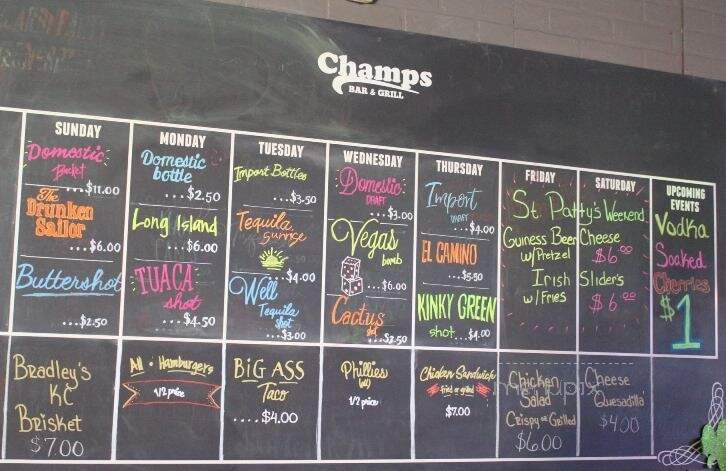 Champs
BAR & GRILL
SUNDAY
Domestic
Bucket
...$11.00
The
Drunken
Sailor
...$6.00
Buttershot
...$2.50
Bradley's
KC
Brisket
$7.00
MONDAY
Domestic
bottle
...$2.50
Long Island
...$6.00
TUACA
shot
...$4.50
All • Hamburgers
1/2 price
TUESDAY
Import Bottles
...$3.50
Tequila
Sunrise
...$4.00
Well
Tequila
shot
...$3.00
BiG ASS
Taco
....$4.00
WEDNESDAY
Domestic
DRAFT
...$3.00
Vegas
bomb
...$6.00
Cactus
...$2.50
Phillies
1/2 price
THURSDAY
Import
DRAFT
...$4.00
EL CAMINO
...$5.50
KINKY GREEN
shot...$4.00
Chicken Sandwich
fried or grilled
$7.00
FRIDAY
SATURDAY
St. Patty's Weekend
Guiness Beer
w/Pretzel
Irish
w/Fries
Cheese
$6.00
Slider's
$6.00
Chicken
Salad
Crispy or Grilled
$6.00
Cheese
Quesadilla
$4.00
UPCOMING
EVENTS
Vodka
Soaked
Cherries
$1